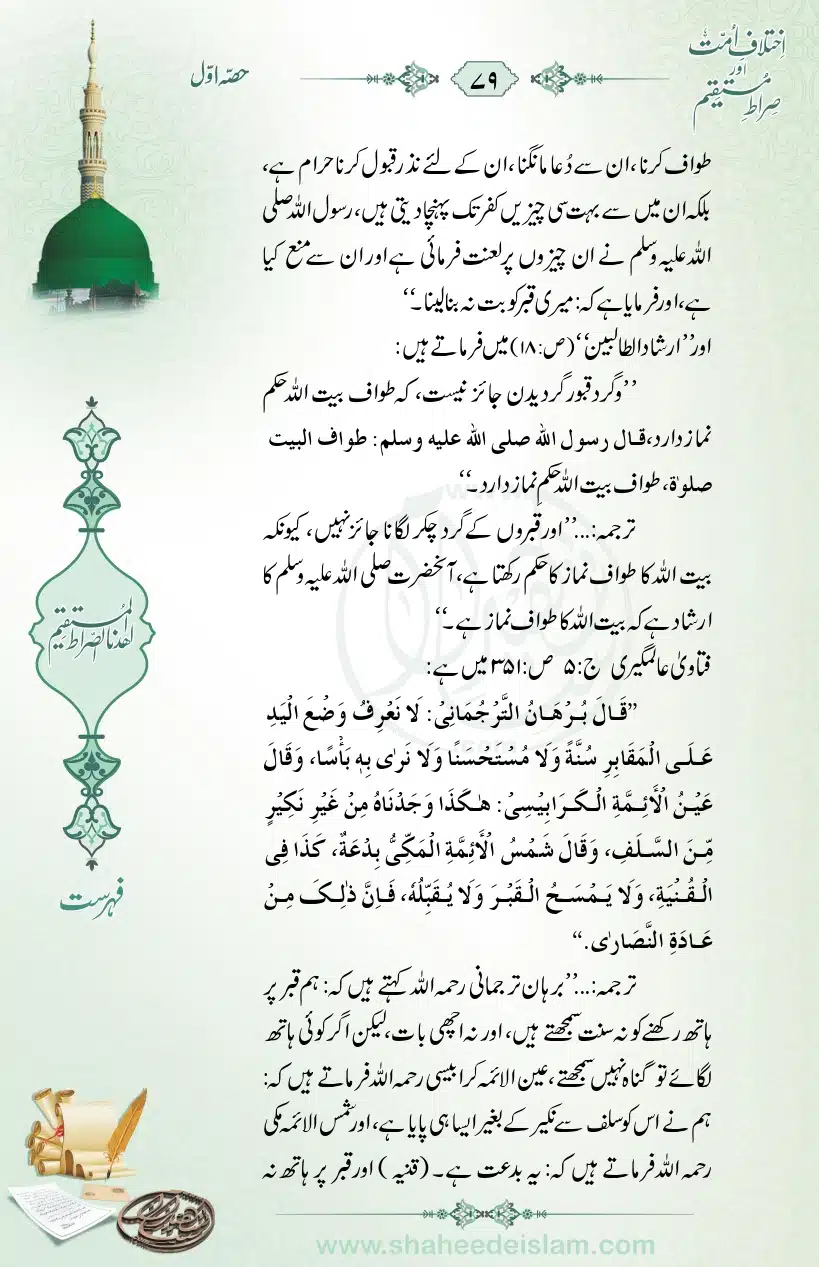 اِختلافِ اُمّت
اور
صِراطِ مُستقیم
۷۹
حصّہ اوّل
طواف کرنا، ان سے دُعا مانگنا، ان کے لئے نذر قبول کرنا حرام ہے،
بلکہ ان میں سے بہت سی چیزیں کفر تک پہنچا دیتی ہیں، رسول اللہ صلی
اللہ علیہ وسلم نے ان چیزوں پر لعنت فرمائی ہے اور ان سے منع کیا
ہے، اور فرمایا ہے کہ: میری قبر کو بت نہ بنا لینا۔‘‘
اور ’’ارشاد الطالبین‘‘ (ص:۱۸) میں فرماتے ہیں:
’’وگرد قبور گردیدن جائز نیست، کہ طواف بیت اللہ حکم
نماز دارد، قال رسول اللہ صلی اللہ علیہ وسلم: طواف البیت
صلوٰة، طواف بیت اللہ حکمِ نماز دارد۔‘‘
ترجمہ:...’’اور قبروں کے گرد چکر لگانا جائز نہیں، کیونکہ
بیت اللہ کا طواف نماز کا حکم رکھتا ہے، آنحضرت صلی اللہ علیہ وسلم کا
ارشاد ہے کہ بیت اللہ کا طواف نماز ہے۔‘‘
فتاویٰ عالمگیری ج:۵ ص:۳۵۱ میں ہے:
’’قَالَ بُرْهَانُ التَّرْجُمَانِیْ: لَا نَعْرِفُ وَضْعَ الْیَدِ
عَلَی الْمَقَابِرِ سُنَّةً وَلَا مُسْتَحْسَنًا وَلَا نَرٰی بِهٖ بَأْسًا، وَقَالَ
عَیْنُ الْأَئِمَّةِ الْکَرَابِیْسِیْ: هٰکَذَا وَجَدْنَاهُ مِنْ غَیْرِ نَکِیْرٍ
مِّنَ السَّلَفِ، وَقَالَ شَمْسُ الْأَئِمَّةِ الْمَکِّیُّ بِدْعَةٌ، کَذَا فِی
الْقُنْیَةِ، وَلَا یَمْسَحُ الْقَبْرَ وَلَا یُقَبِّلُهٗ، فَاِنَّ ذٰلِکَ مِنْ
عَادَةِ النَّصَارٰی.‘‘
ترجمہ:...’’برہان ترجمانی رحمہ اللہ کہتے ہیں کہ: ہم قبر پر
ہاتھ رکھنے کو نہ سنت سمجھتے ہیں، اور نہ اچھی بات، لیکن اگر کوئی ہاتھ
لگائے تو گناہ نہیں سمجھتے، عین الائمہ کرابیسی رحمہ اللہ فرماتے ہیں کہ:
ہم نے اس کو سلف سے نکیر کے بغیر ایسا ہی پایا ہے، اور شمس الائمہ مکی
رحمہ اللہ فرماتے ہیں کہ: یہ بدعت ہے۔ (قنیہ) اور قبر پر ہاتھ نہ
اِهْدِنَا الصِّرَاطَ الْمُسْتَقِیْمَ
فہرست
www.shaheedeislam.com